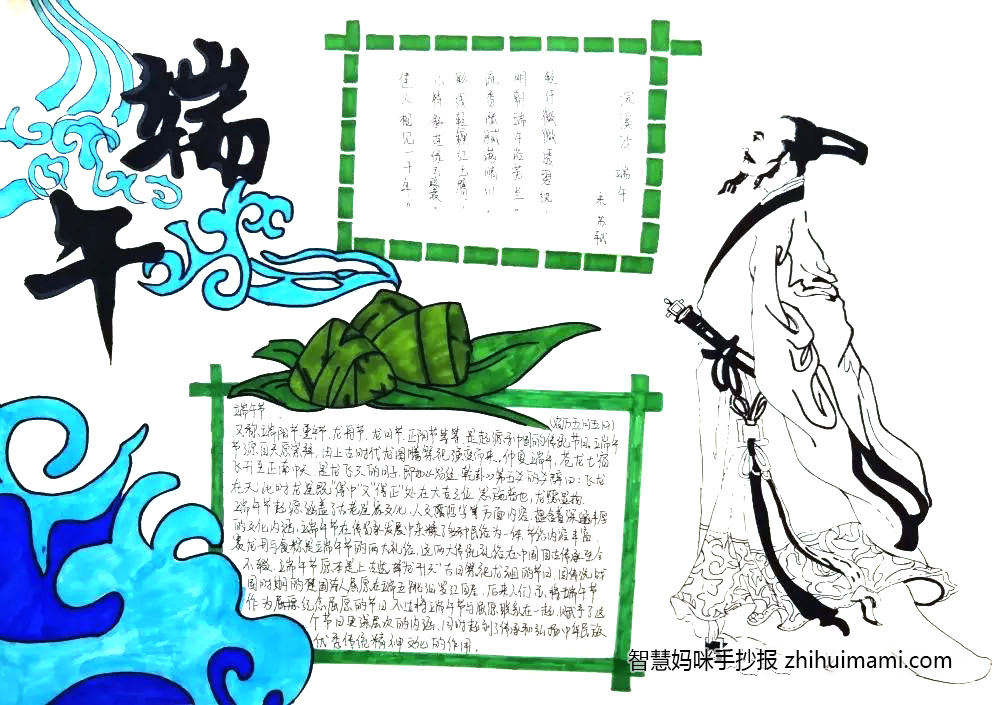 端
午
浣溪沙 端午
宋 苏轼
轻汗微微透碧纨,
明朝端午浴芳兰。
流香涨腻满晴川。
彩线轻缠红玉臂,
小符斜挂绿云鬟。
佳人相见一千年。
端午节 (农历五月五日)
又称端阳节、重午节、龙舟节、龙日节、正阳节等等,是起源于中国的传统节日。端午
节源自天象崇拜,由上古时代龙图腾祭祀演变而来。仲夏端午,苍龙七宿
飞升至正南中天,是龙飞天的日子,即如《易经·乾卦》第五爻的爻辞曰:飞龙
在天,此时龙星既"得中"又"得正"处在大吉之位 龙
端午节起源涵盖了古老星象文化、人文哲学等方面内容,蕴含着深邃丰厚
的文化内涵,端午节在传承发展中杂揉了多种民俗为一体,节俗内容丰富
赛龙舟与食粽是端午节的两大礼俗,这两大传统礼俗在中国自古传承至今
不辍。端午节原本是上古先 "龙升天"吉日祭祀龙祖的节日,因传说战
国时期的楚国诗人屈原在端五跳汨罗江自尽,后来人们亦将端午节
作为 纪念屈原的节日不过将端午节与屈原联系在一起,赋予了这
个节日更深层次的内涵,同时起到了传承和弘扬中华民族
优秀传统精神文化的作用。
智慧妈咪手抄报 zhihuimami.com